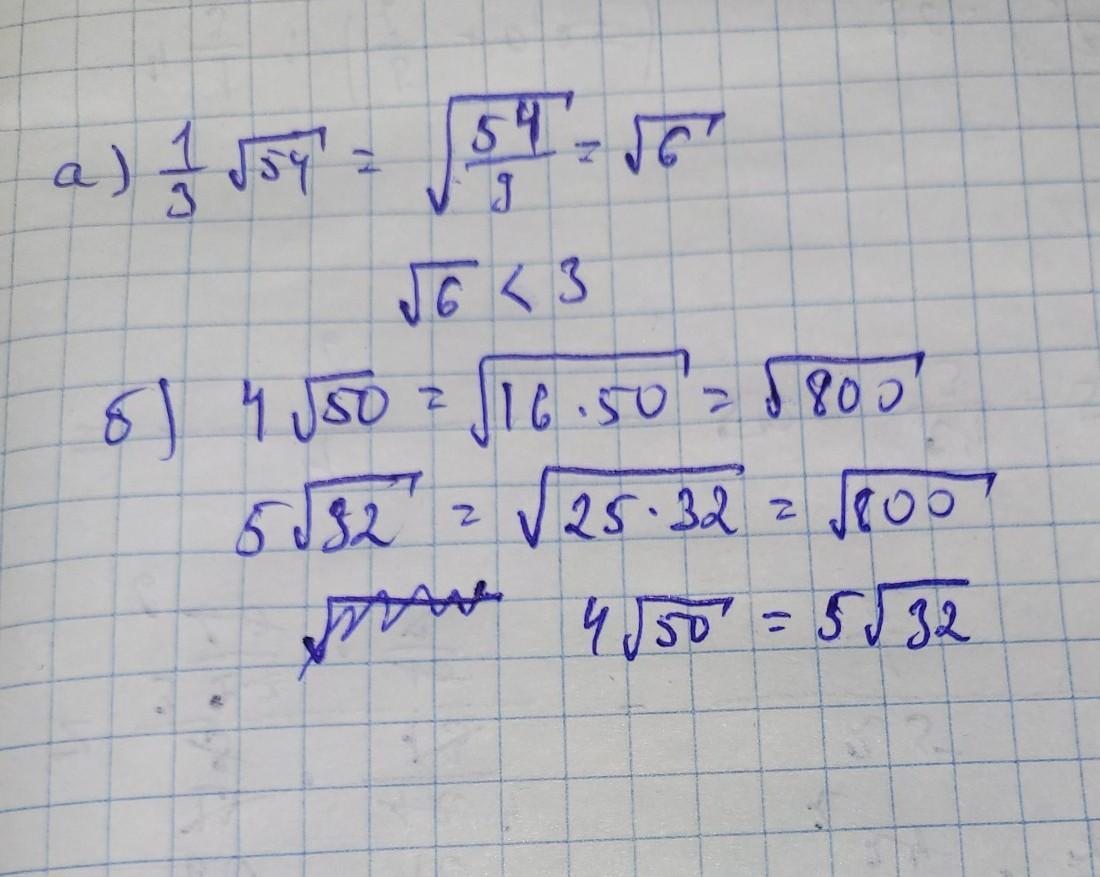 а) 1/3 √54 = √(54/9) = √6
√6 < 3
б) 4√50 = √(16·50) = √800
5√32 = √(25·32) = √800
4√50 = 5√32